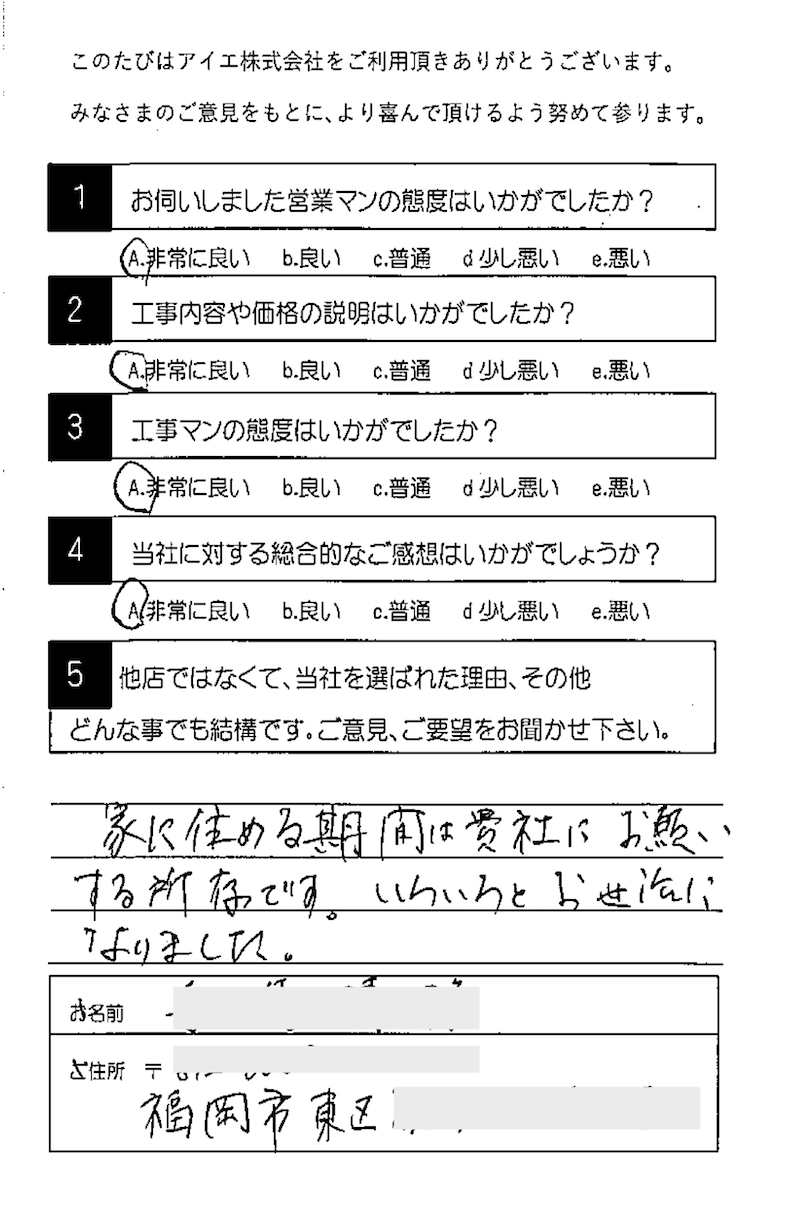 このたびはアイエ株式会社をご利用頂きありがとうございます。
みなさまのご意見をもとに、より喜んで頂けるよう努めて参ります。
1 お伺いしました営業マンの態度はいかがでしたか？
A.非常に良い b.良い c.普通 d 少し悪い e.悪い
2 工事内容や価格の説明はいかがでしたか？
A.非常に良い b.良い c.普通 d 少し悪い e.悪い
3 工事マンの態度はいかがでしたか？
A.非常に良い b.良い c.普通 d 少し悪い e.悪い
4 当社に対する総合的なご感想はいかがでしょうか？
A.非常に良い b.良い c.普通 d 少し悪い e.悪い
5 他店ではなくて、当社を選ばれた理由、その他
どんな事でも結構です。ご意見、ご要望をお聞かせ下さい。
家に住める期間は貴社にお願い
する所存です。いろいろとお世話に
なりました。
お名前
ご住所 〒
福岡市東区